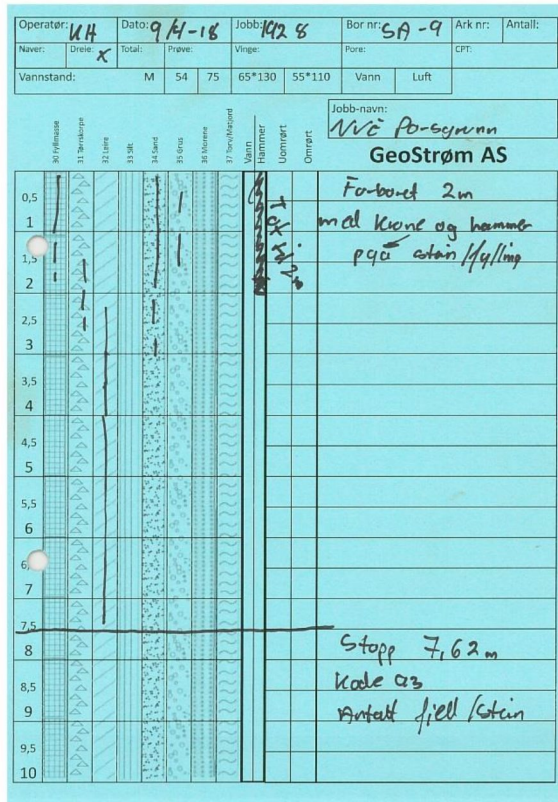 Operatør: KH Dato: 9/4-18 Jobb: 1928 Bor nr: SA-9 Ark nr: Antall:
Naver: Dreie: X Total: Prøve: Vinge: Pore: CPT:
Vannstand: M 54 75 65*130 55*110 Vann Luft
Jobb-navn:
NVE
GeoStrøm AS
30 Fyllmasse
31 Tørrskorpe
32 Leire
33 Silt
34 Sand
35 Grus
36 Morene
37 Torv/Matjord
Vann
Hammer
Uomrørt
Omrørt
0,5
1
1,5
2
2,5
3
3,5
4
4,5
5
5,5
6
6,
7
7,5
8
8,5
9
9,5
10
Forboret 2m
med krone og hammer
pga stein/fylling
Stopp 7,62m
Kode 93
Antatt fjell/stein